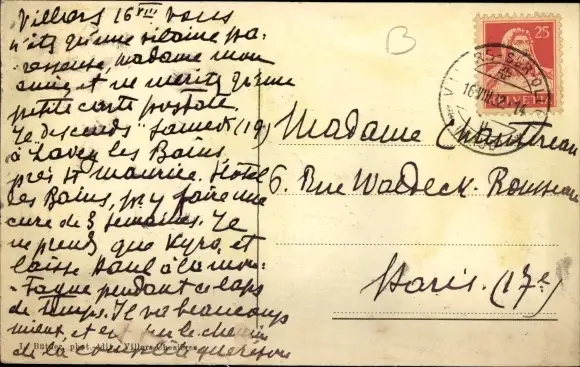 Villars 16 VIII vous
n'êtes qu'une vilaine pa-
resseuse, madame mon
amie, et ne méritez qu'une
petite carte postale.
Je descends samedi (19)
à Lavey les Bains,
près St Maurice. Hôtel
des Bains, pr y faire une
cure de 3 semaines. Je
ne prends que Kyra, et
laisse Paul à la mon-
tagne pendant ce laps
de temps. Il va beaucoup
mieux, et est sur le chemin
de la complète guérison
L. Bütler, phot. édit. Villars-Chesières
B
25
HELVETIA
VILLARS-SUR-OLLON
16.VIII.
Madame
6. Rue Waldeck-Rousseau
Paris. (17e)